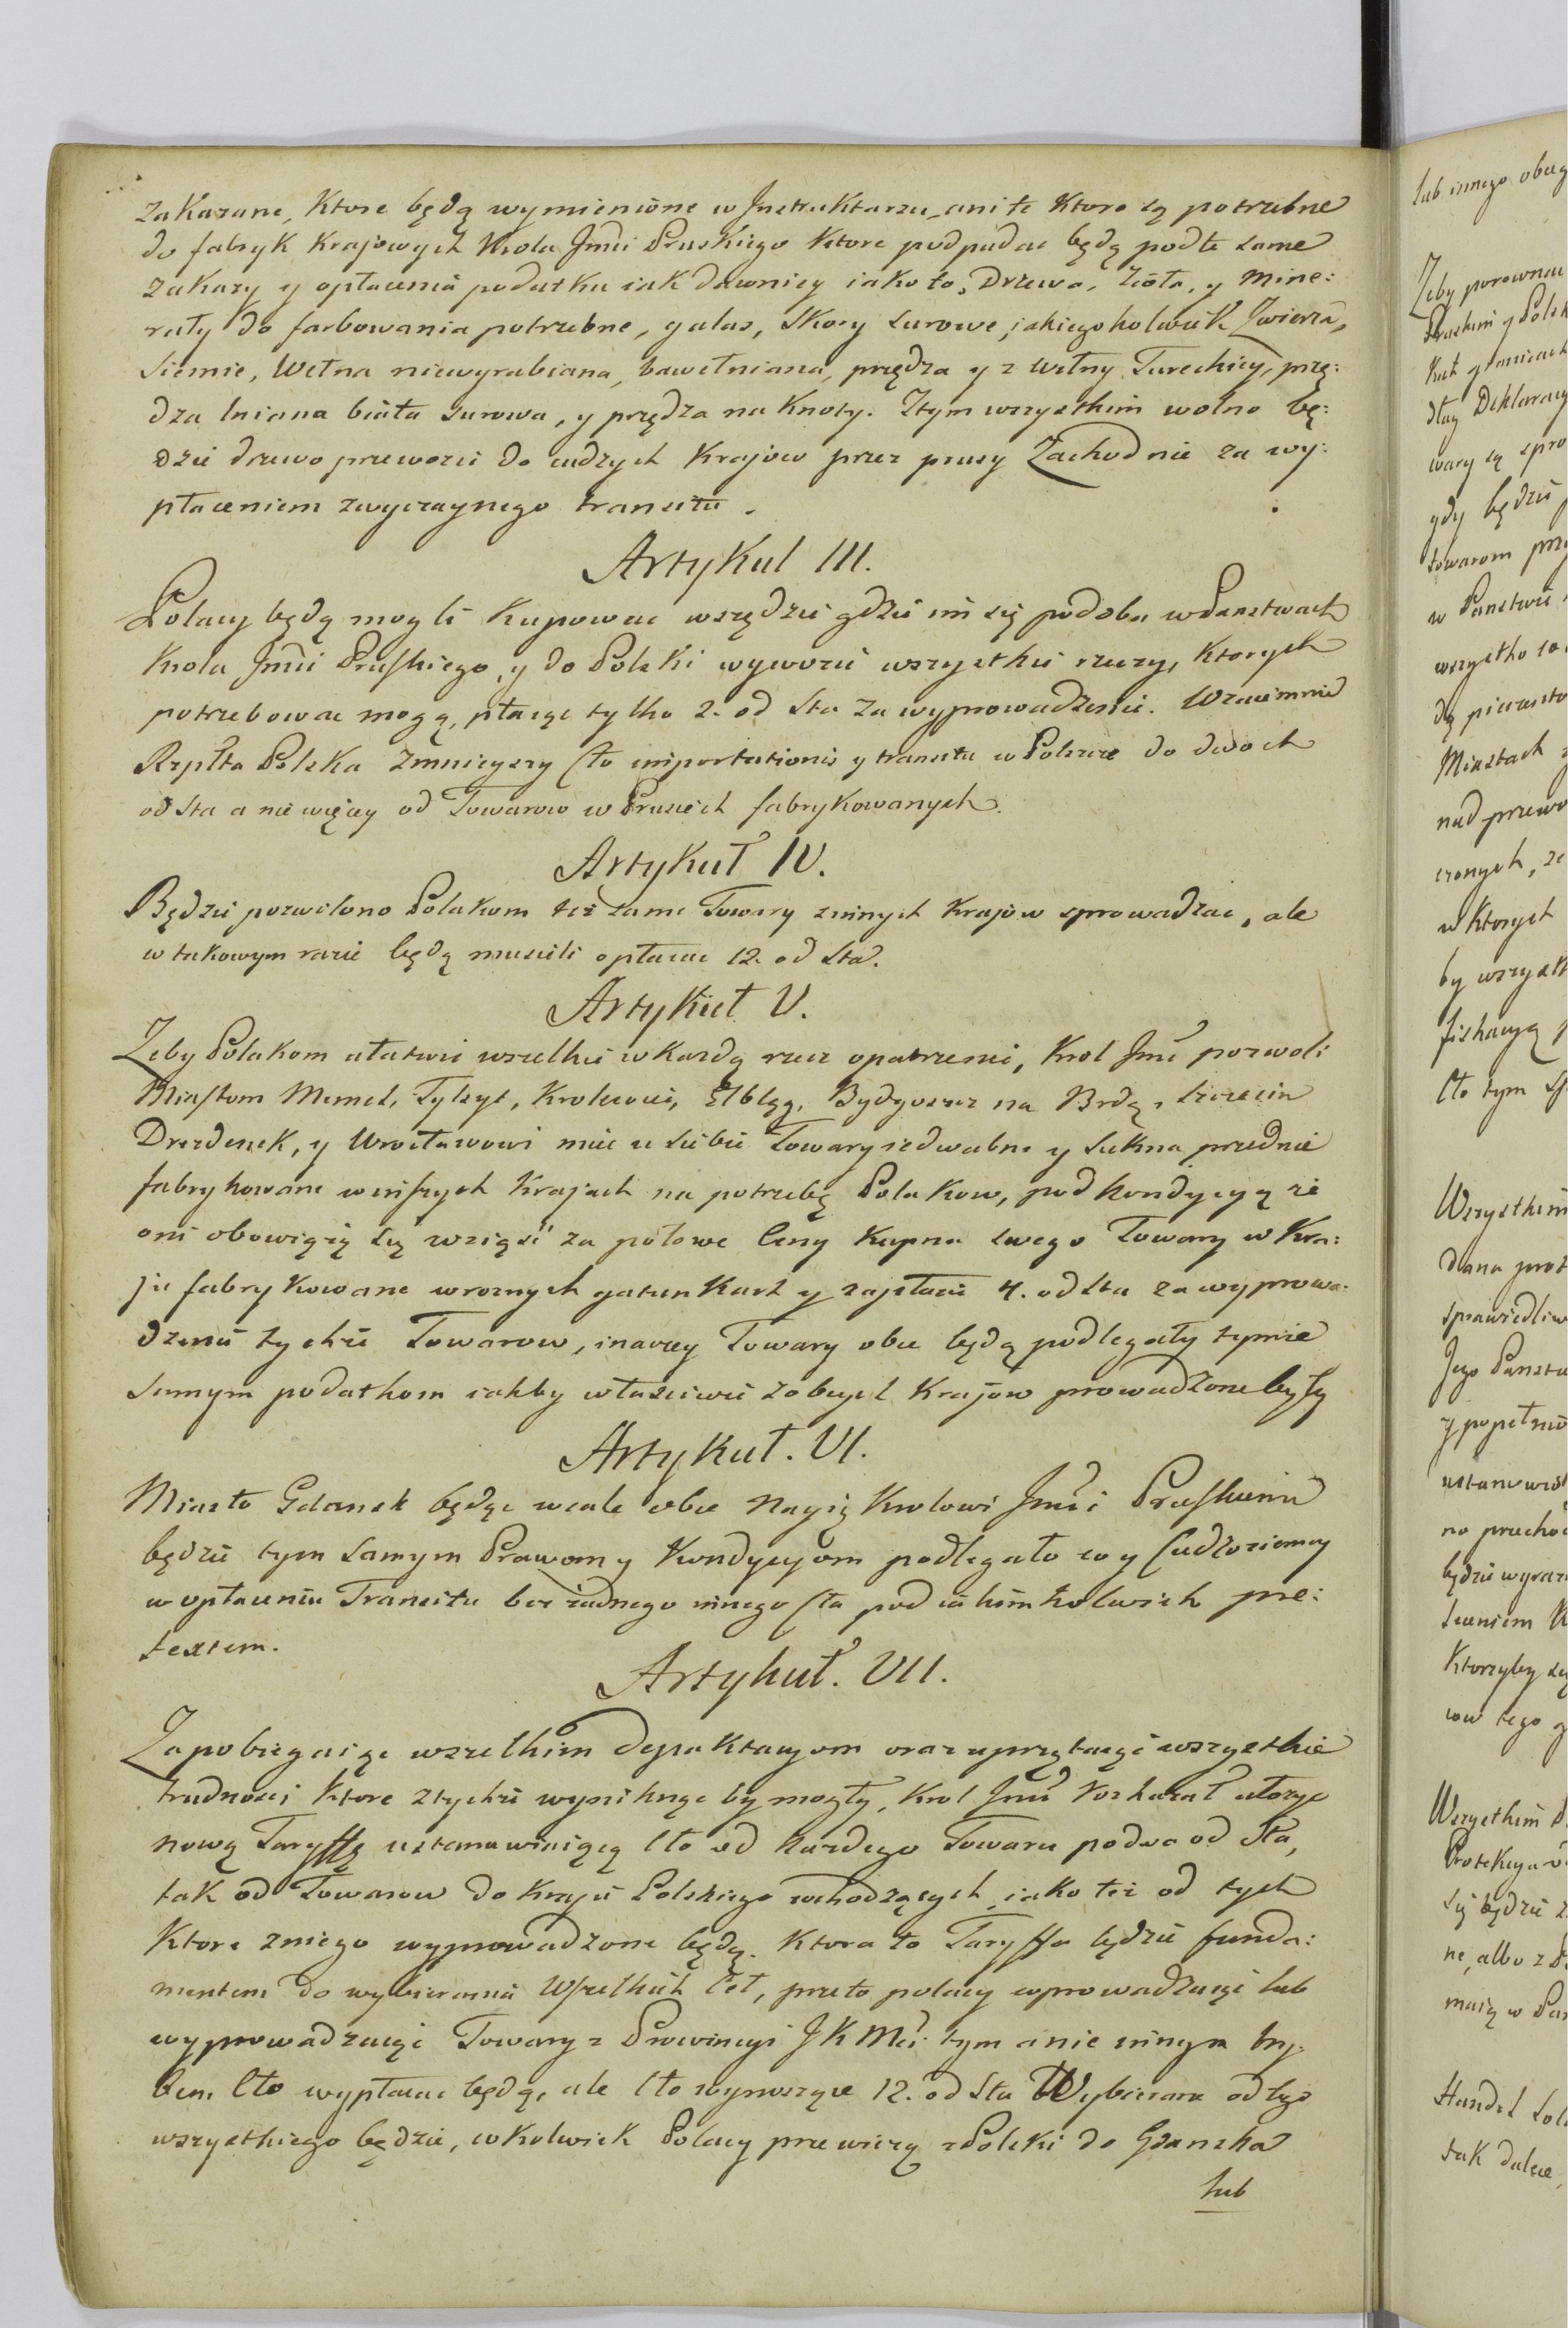 zakazane, Ktore będą wymienione w Instruktarzu, ani te Ktore są potrzebne
do fabryk Krajowych Krola Jmći Pruskiego Ktore podpadac będą pod te same
zakazy y opłacenia podatku iak dawniey iako to, Drzewo, Zioła, y Mine:
rały do farbowania potrzebne, galas, Skory surowe, jakiegokolwiek Zwierza,
Siemie, Wełna niewyrabiana, bawełniana, przędza y z wełny Tureckiey, prze:
dza lniana biała surowa, y przędza na Knoty. Ztym wszystkim wolno bę:
dzie drzewo przewozić do cudzych Krajow przez prusy Zachodnie za wy:
płaceniem zwyczaynego transitu.
Artykul III.
Polacy będą mogli Kupowac wszędzie gdzie im się podoba w Panstwach
Krola Jmći Pruskiego, y do Polski wywozić wszystkie rzeczy, Ktorych
potrzebowac mogą, płacąc tylko 2. od Sta za wyprowadzenie. Wzaiemnie
Rzplta Polska Zmnieyszy Cło importationis y transitu w Polszcze do dwoch
od Sta a nie więcey od Towarow w Prusiech fabrykowanych.
Artykuł IV.
Będzie pozwolono Polakom też same Towary z innych Krajow sprowadzac, ale
w takowym razie będą musieli opłacac 12. od Sta.
Artykuł V.
Zeby Polakom ułatwić wszelkie w Każdą rzecz opatrzenie, Krol Jmć pozwoli
Miastom Memel, Tylzyt, Krolewiec, Elbląg, Bydgoszcz na Brdą, Szczecin
Drezdenek, y Wrocławowi mieć u siebie Towary iedwabne y Sukna przednie
fabrykowane w inszych Krajach na potrzebę Polakow, pod kondycyą że
oni obowiążą się wziąść za połowe Ceny Kupna swego Towary w Kra:
ju fabrykowane w roznych gatunkach y zapłacić 4. od Sta za wyprowa:
dzenie tychże Towarow, inaczey Towary obce będą podlegały tymże
samym podatkom iakby właściwie z obcych Krajow prowadzone były
Artykuł. VI.
Miasto Gdansk będąc wcale obce Nayią Krolowi Jmći Pruskiemu
będzie tym samym Prawom y Kondycyom podlegało co y Cudzoziemcy
w opłaceniu Transitu bez żadnego innego Cła pod iakimkolwiek pre:
textem.
Artykuł. VII.
Zapobiegaiąc wszelkim dysputacyom oraz uprzątaiąc wszystkie
trudnosci Ktore z tychże wyniknąc by mogły, Krol Jmć rozkazał ułożyc
nową Taryffę ustanawiaiącą Cło od Każdego Towaru po dwa od Sta,
tak od Towarow do Kraju Polskiego wchodzących iako też od tych
Ktore z niego wyprowadzone będą. Ktora to Taryffa będzie funda:
mentem do wybierania Wszelkich Ceł, przeto polacy wprowadzaiąc lub
wyprowadzaiąc Towary z Prowincyi J K Mći tym a nie innym try:
bem Cło wypłacac będą, ale Cło wynoszące 12. od Sta Wybierane od tego
wszystkiego będzie, cokolwiek Polacy przewiozą z Polski do Gdanska
lub
lub innego
Zeby porownac
Pruskim y Polsk
Deklaracy
wary są spro
gdy będzie
towarom przy
w Panstwie
wszystko co
Miastach
nad przewo
w Ktorych
by wszystk
fiskacyą
Cło tym
Wszystkim
dana
sprawiedliw
Jego Panstw
y popełnio
ustanowio
no przecho
będzie wyraz
Ktorzyby
tego
Wszystkim
Protekcya
się będzie
ne, albo z
maią w Pan
Handel Sol
tak dalece,